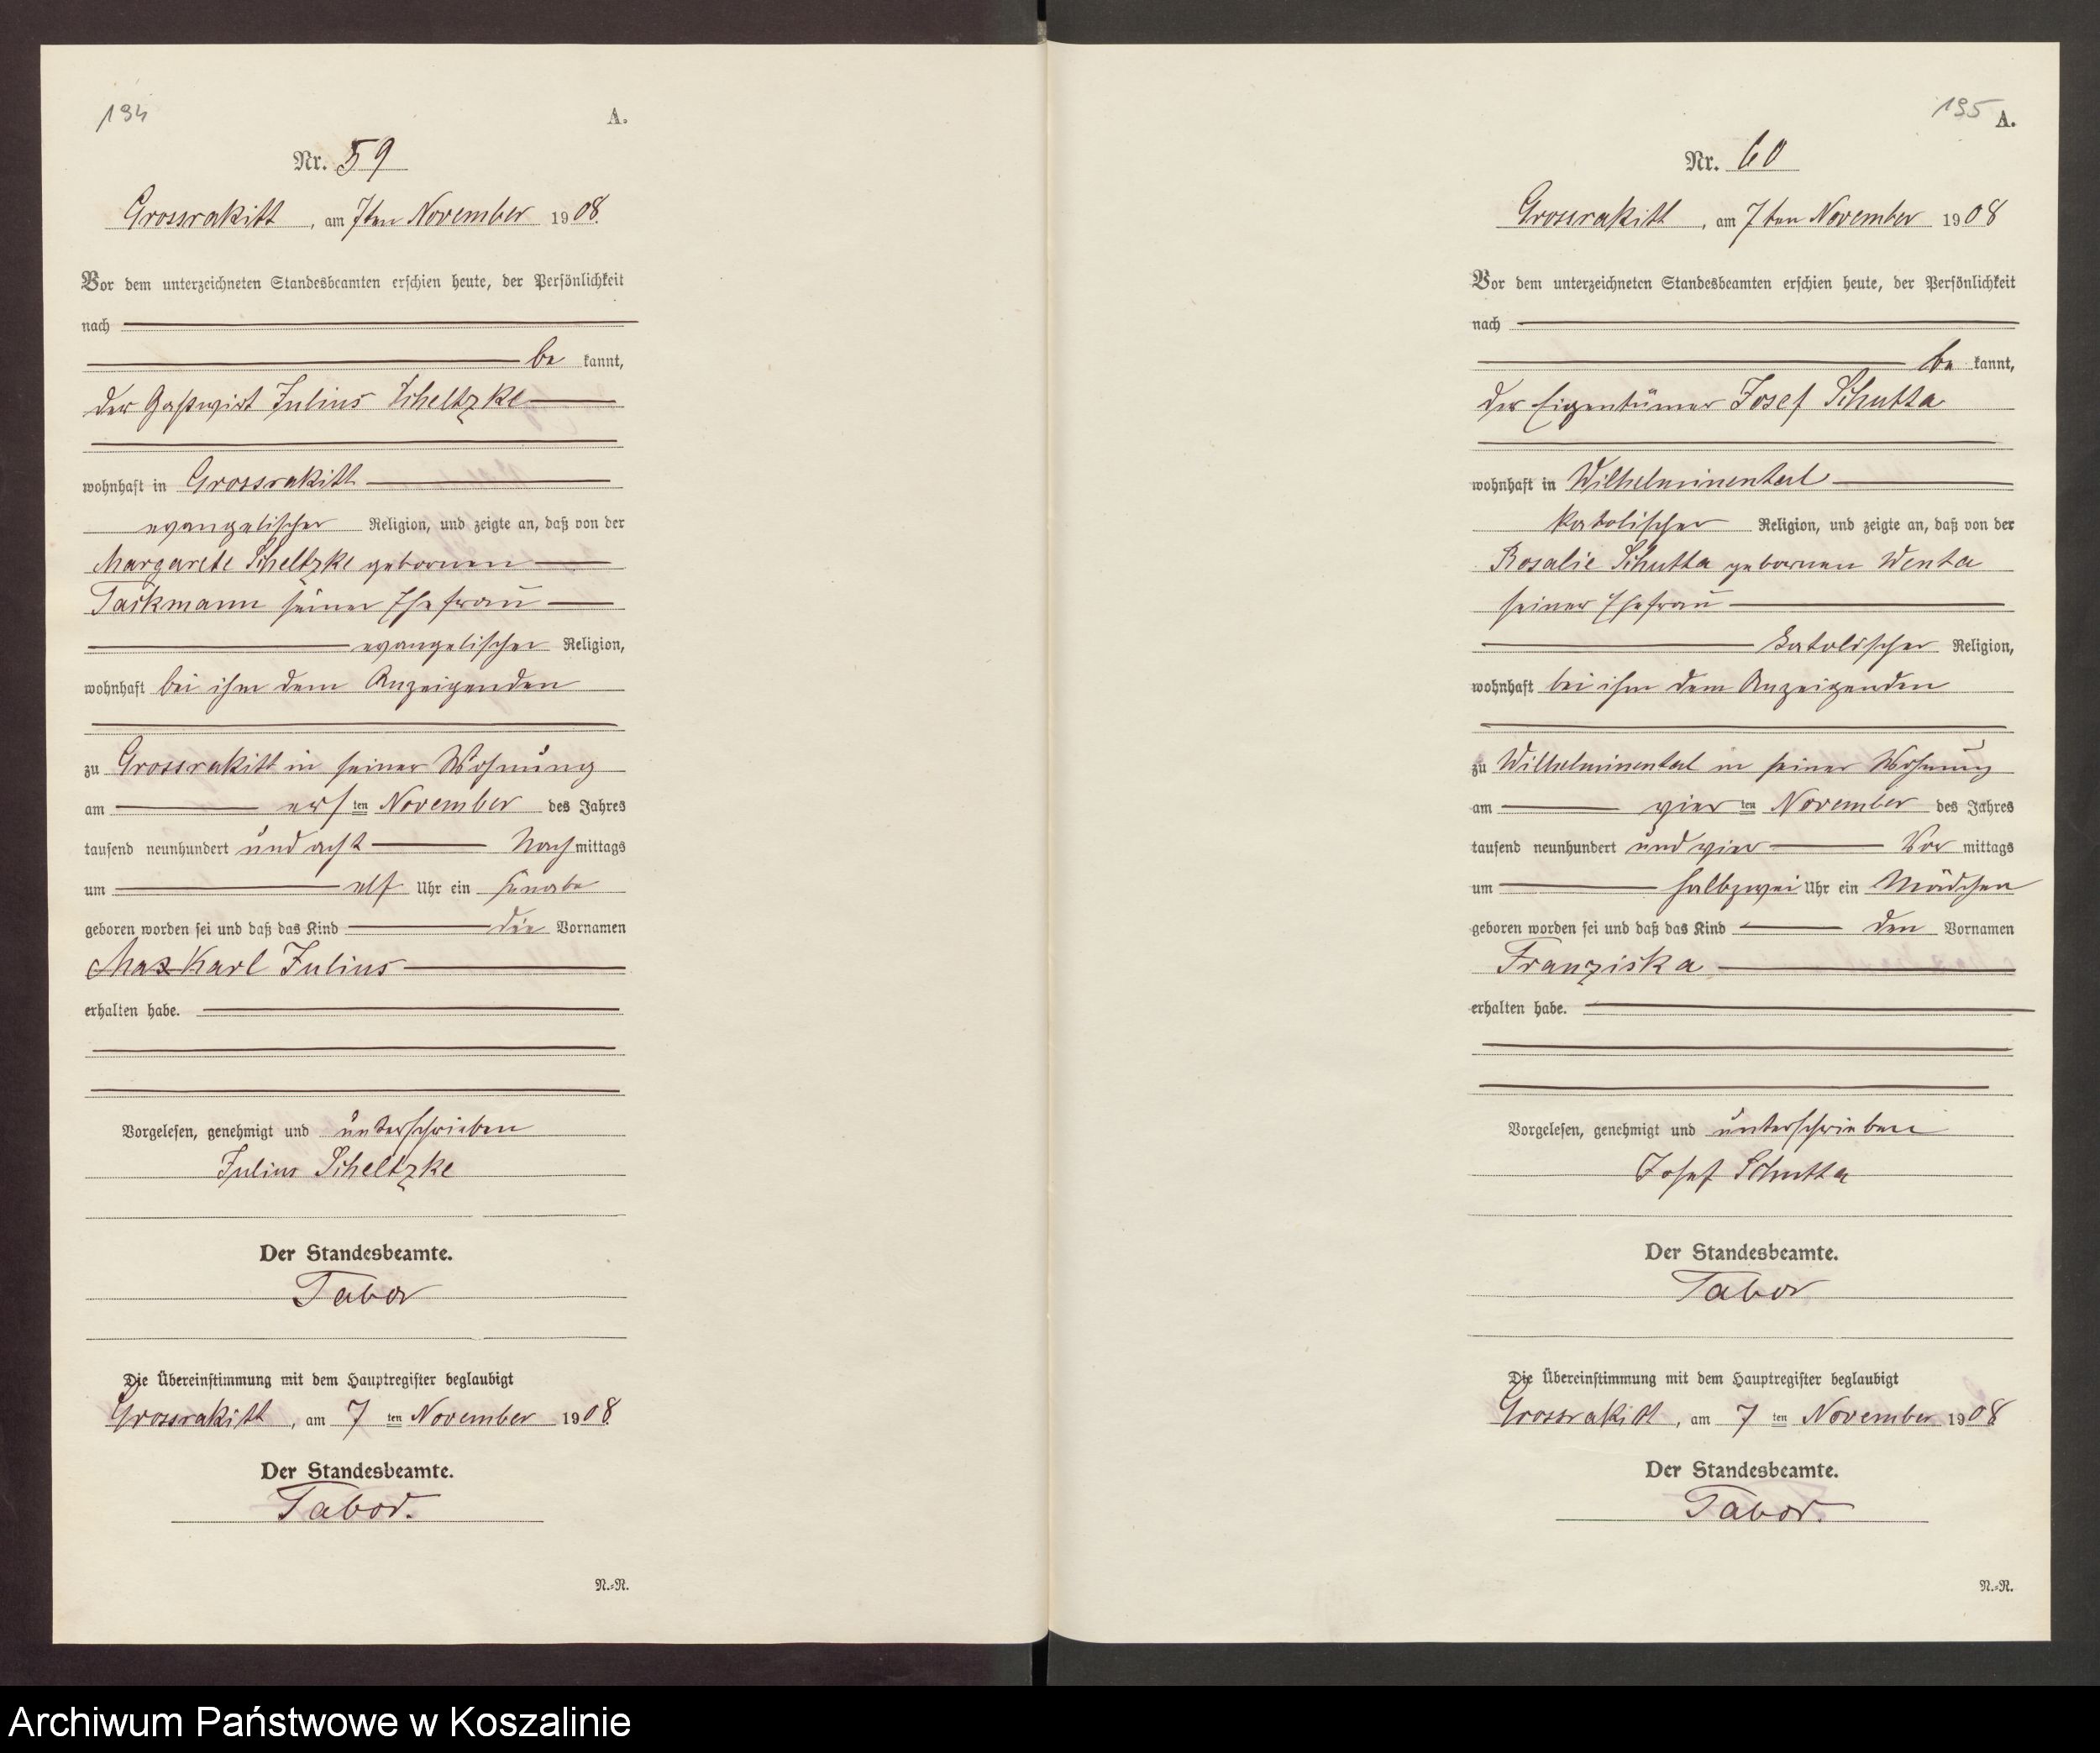 194
A.
Nr. 59
Grossrakitt, am 7ten November 1908.
Vor dem unterzeichneten Standesbeamten erschien heute, der Persönlichkeit
nach
be kannt,
der Gastwirt Julius Scheltzke
wohnhaft in Grossrakitt
evangelischer Religion, und zeigte an, daß von der
Margarete Scheltzke gebornen
Tackmann seiner Ehefrau
evangelischer Religion,
wohnhaft bei ihm dem Anzeigenden
zu Grossrakitt in seiner Wohnung
am ersten November des Jahres
tausend neunhundert und acht Nachmittags
um elf Uhr ein Knabe
geboren worden sei und daß das Kind die Vornamen
Max Karl Julius
erhalten habe.
Vorgelesen, genehmigt und unterschrieben
Julius Scheltzke
Der Standesbeamte.
Tabor
Die Übereinstimmung mit dem Hauptregister beglaubigt
Grossrakitt, am 7 ten November 1908.
Der Standesbeamte.
Tabor.
N.=N.
195
A.
Nr. 60
Grossrakitt, am 7ten November 1908
Vor dem unterzeichneten Standesbeamten erschien heute, der Persönlichkeit
nach
be kannt,
der Eigentümer Josef Schutta
wohnhaft in Wilhelminental
katolischer Religion, und zeigte an, daß von der
Rosalie Schutta gebornen Wenta
seiner Ehefrau
katolischer Religion,
wohnhaft bei ihm dem Anzeigenden
zu Wilhelminental in seiner Wohnung
am vierten November des Jahres
tausend neunhundert und vier Vor mittags
um halbzwei Uhr ein Mädchen
geboren worden sei und daß das Kind den Vornamen
Franziska
erhalten habe.
Vorgelesen, genehmigt und unterschrieben
Josef Schutta
Der Standesbeamte.
Tabor
Die Übereinstimmung mit dem Hauptregister beglaubigt
Grossrakitt, am 7 ten November 1908
Der Standesbeamte.
Tabor.
N.=N.
Archiwum Państwowe w Koszalinie